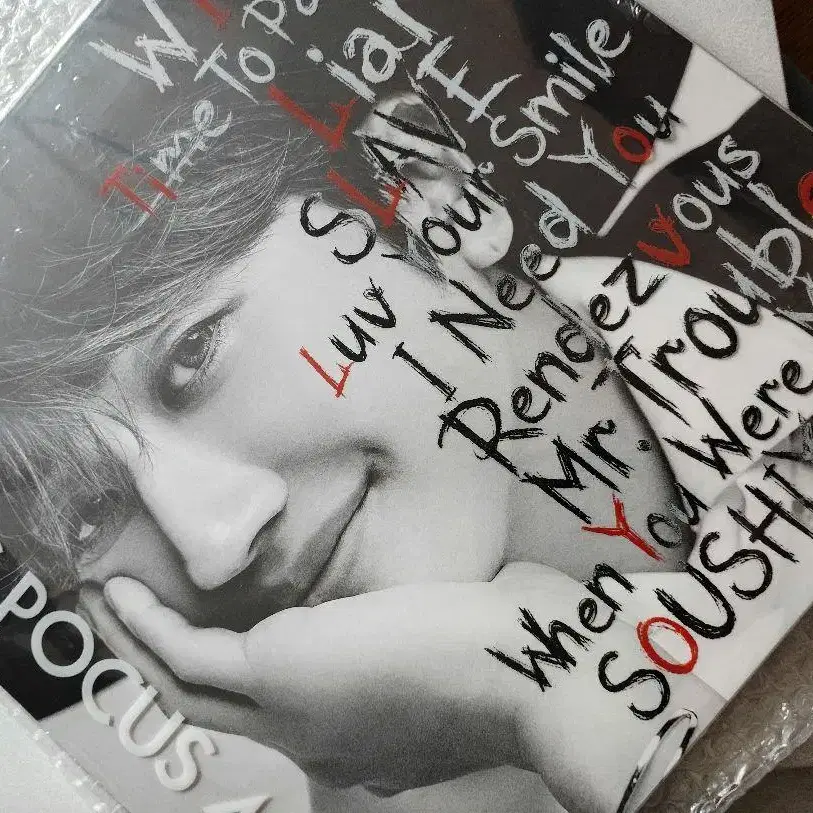 Time To
Liar
SLAVE
Luv Your Smile
I Need You
Rendezvous
Mr. Trouble
When You Were
SOUSHI
POCUS